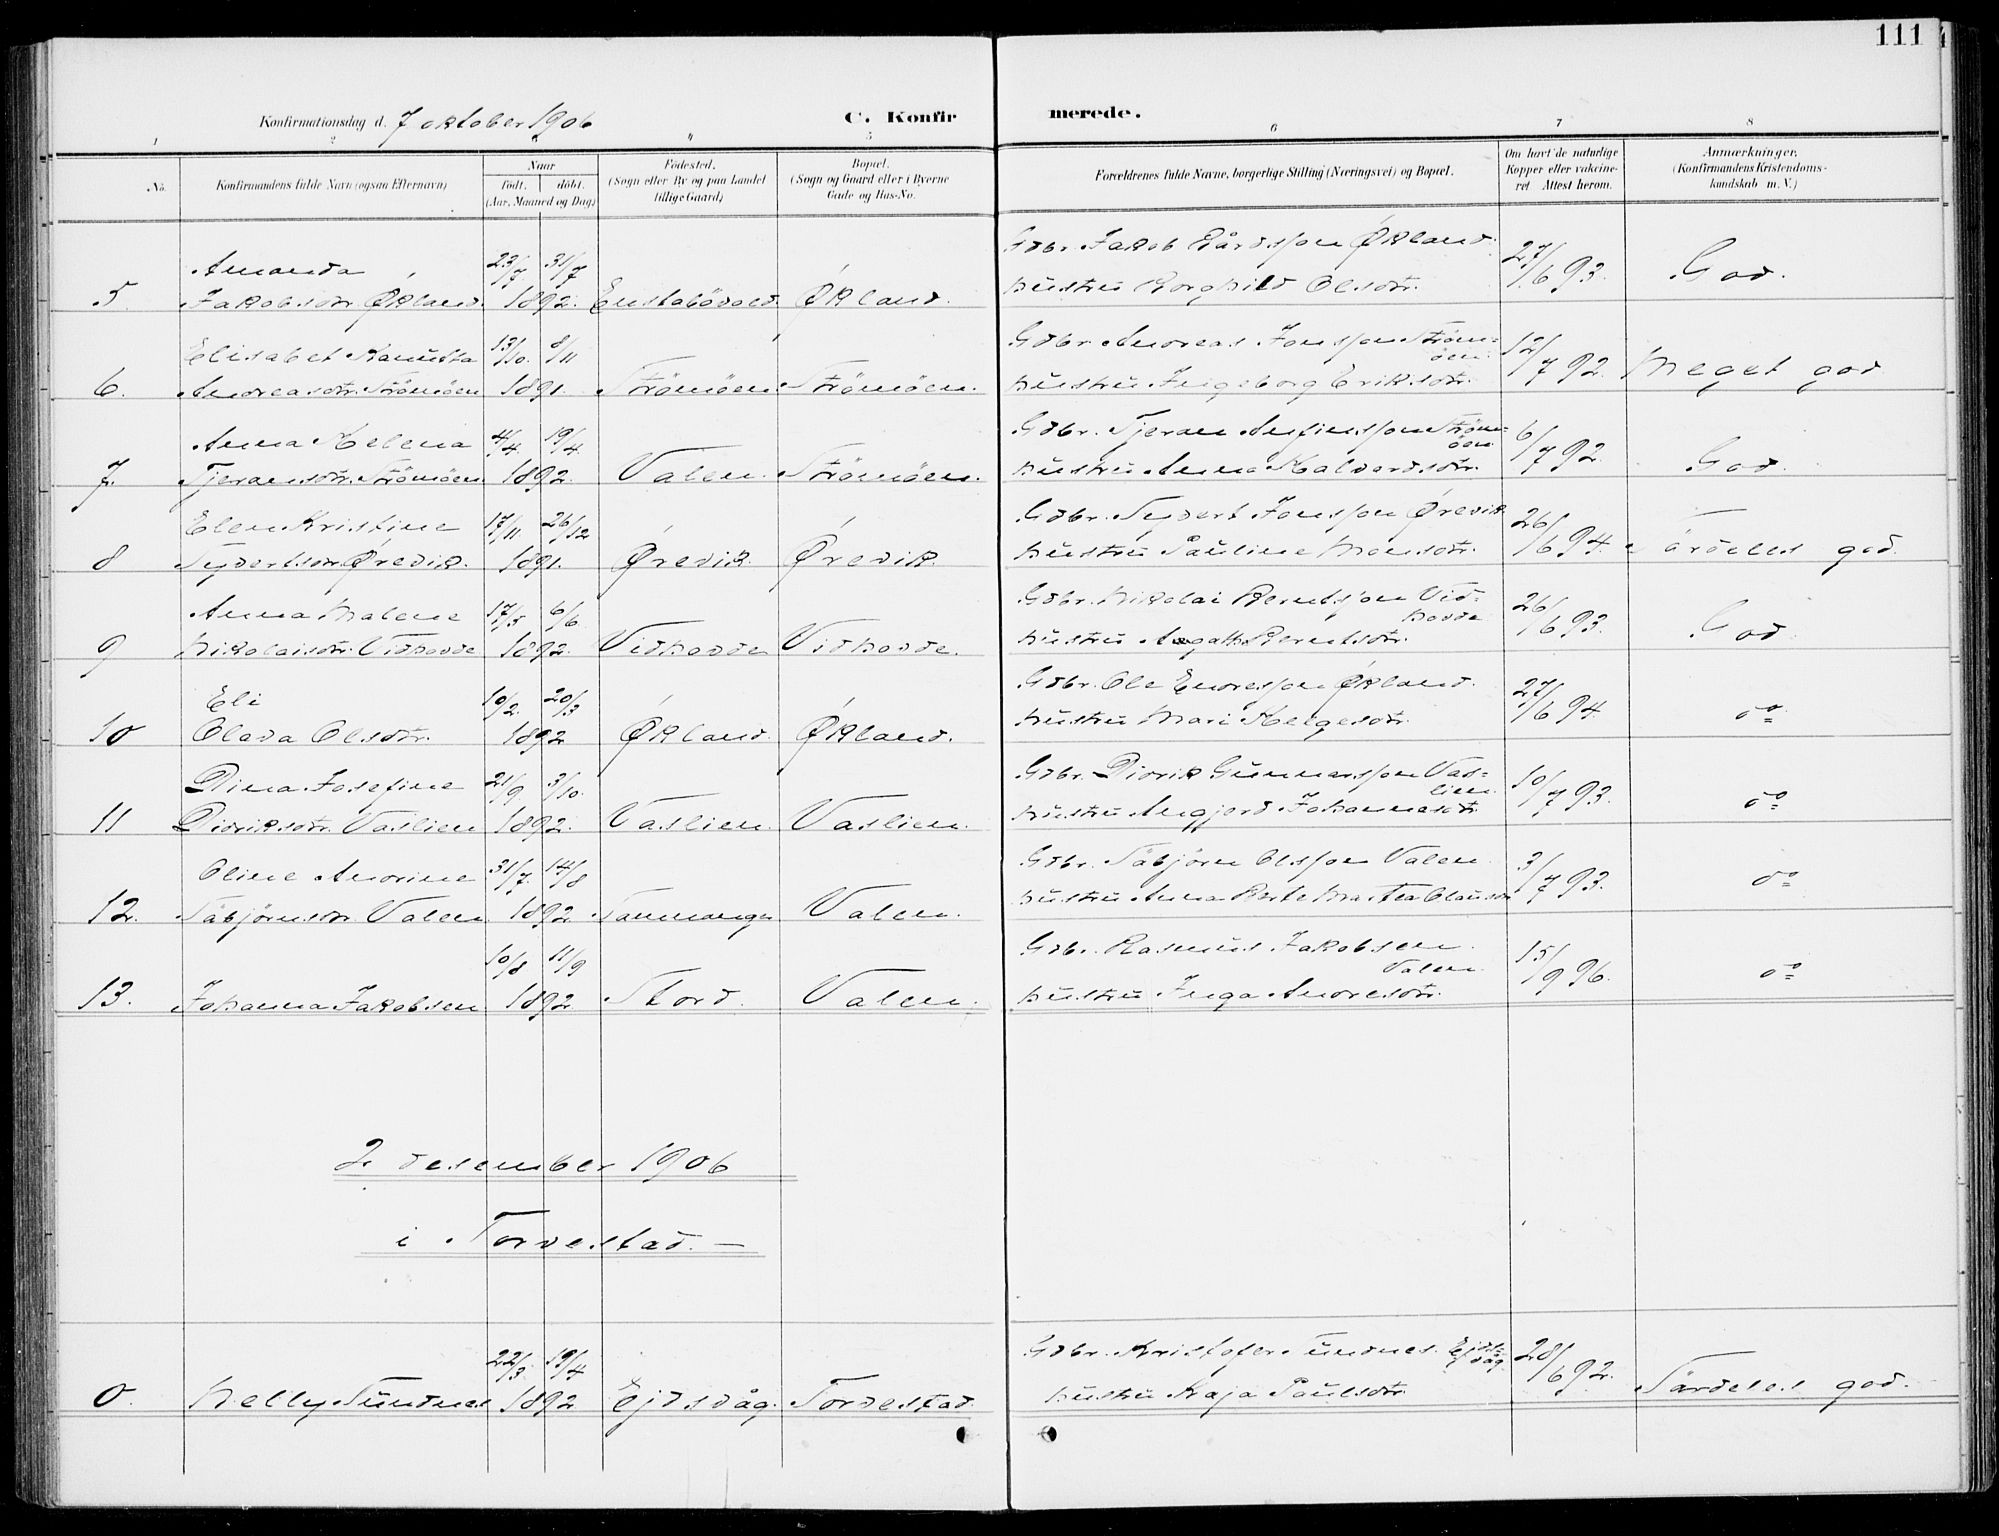 111
Konfirmationsdag d. 7 oktober 1906
C. Konfirmerede.
1 2 3 4 5 6 7 8
No.
Konfirmandens fulde Navn (ogsaa Efternavn)
Naar
født. døbt.
(Aar, Maaned og Dag)
Fødested.
(Sogn eller By og paa Landet
tillige Gaard)
Bopæl.
(Sogn og Gaard eller i Byerne
Gade og Hus-No.
Forældrenes fulde Navne, borgerlige Stilling (Næringsvei) og Bopæl.
Om havt de naturlige
Kopper eller vakcine-
ret Attest herom.
Anmærkninger.
(Konfirmandens Kristendoms-
kundskab m. V.)
Amanda 23/7 31/7 Gdbr. Jakob Økland. 27/6 93. God.
5 Jakobsdtr. Økland. 1892. Økland. hustru Borghild Olsdtr.
Elisabet 13/10. 8/11 Gdbr. Andreas Jonsson Strøm-
øen. 12/7 92. Meget god
6. Andreasdtr. Strømøen 1891. Strømøen. Strømøen. hustru Ingeborg Eriksdtr.
Anna Helena 4/4 19/4 Gdbr. Tjeran Strøm-
øen. 6/7 92. God.
7. Tjeransdtr. Strømøen. 1892. Valen. Strømøen. hustru Anna Halvardsdtr.
Elen Kristine 17/11. 26/12 Gdbr. Syvert Jonsson Ørevik 26/6 94. Særdeles god.
8 Syvertsdtr. Ørevik. 1891. Ørevik. Ørevik. hustru Pauline Monsdtr.
Anna Malene 17/5 6/6 Gdbr. Nikolai Berntsson Vid-
hovde 26/6 93. God.
9 Nikolaisdtr. Vidhovde 1892. Vidhovde Vidhovde. hustru Agatha Berntsdtr.
Eli 10/2. 20/3 Gdbr. Ole Endresson Økland. 27/6 94. do
10 Olava Olsdtr. 1892 Økland. Økland. hustru Mari Helgesdtr.
Dina Josefine 21/9 3/10. Gdbr. Didrik Gunnarsson Vas-
lien. 10/7 93. do
11 Didriksdtr. Vaslien 1892. Vaslien. Vaslien. hustru Angjerd Johannesdtr
Oline Andrine 31/7. 14/8 Gdbr. Säbjørn Olsson Valen. 3/7 93. do
12. Säbjørnsdtr. Valen. 1892. Valen. hustru Anna Berte Martea
10/8 11/9 Gdbr. Rasmus Jakobsen
Valen. 15/9 96. do
13. Johanna Jakobsen 1892. Stord. Valen. hustru Inga Andresdtr.
2. desember 1906
i Torvestad. —
22/3. 19/4 Gdbr. Kristofer Tundnes. Ejds-
våg 28/6 92. Særdeles god.
0. Nelly Tundnes 1892 Ejdsvåg. Torvestad. hustru Kaja Paulsdtr.